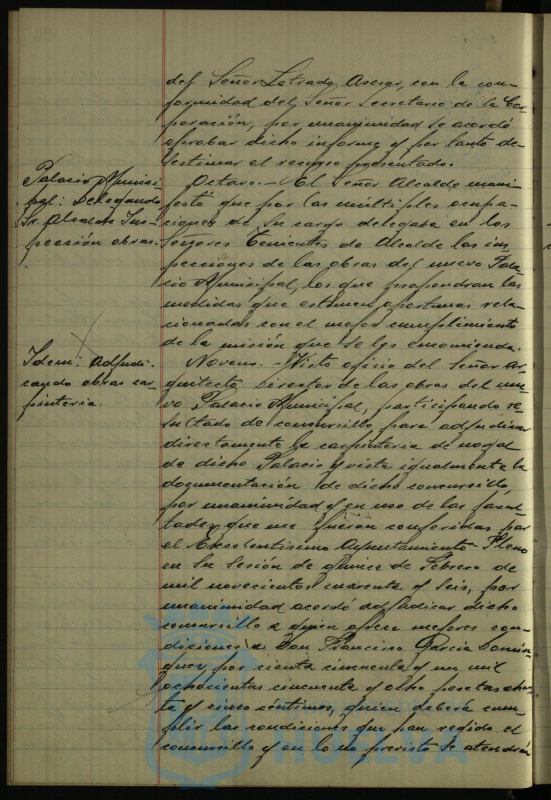 del Señor Letrado Asesor, con la con-
formidad del Señor Secretario de la Cor-
poración, por unanimidad se acordó
aprobar dicho informe y por tanto de-
sestimar el recurso presentado.
Palacio Munici-
pal: Delegando
Sr. Alcalde Ins-
pección obras.
Octavo.- El Señor Alcalde mani-
festó que por las múltiples ocupa-
ciones de su cargo delegaba en los
Señores Tenientes de Alcalde las ins-
pecciones de las obras del nuevo Pala-
cio Municipal, los que propondran las
medidas que estimen oportunas rela-
cionadas con el mejor cumplimiento
de la misión que se les encomienda.
Idem: Adjudi-
cando obras car-
pintería.
Noveno.- Visto oficio del Señor Ar-
quitecto Director de las obras del nue-
vo Palacio Municipal, participando re-
sultado de concursillo para adjudicar
directamente la carpintería de nogal
de dicho Palacio y vista igualmente la
documentación de dicho concursillo,
por unanimidad y en uso de las facul-
tades que me fueron conferidas por
el Excelentísimo Ayuntamiento Pleno
en su sesión de quince de Febrero de
mil novecientos cuarenta y seis, por
unanimidad acordó adjudicar dicho
concursillo a quien ofrece mejores con-
diciones a Don Francisco García Domín-
guez, por cienta cincuenta y un mil
ochocientas cincuenta y ocho pesetas ochen-
ta y cinco céntimos, quien deberá cum-
plir las condiciones que han regido el
concursillo y en lo no previsto se atendrán
HUELVA